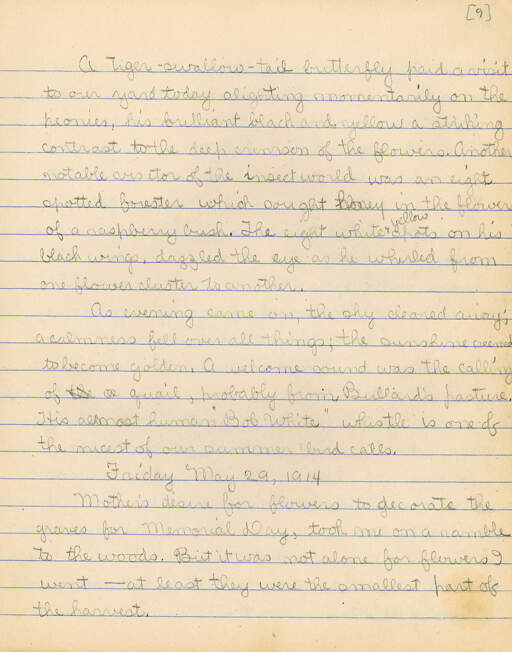 [9]
A Tiger-swallow-tail butterfly paid a visit
to our yard today alighting momentarily on the
peonies, his brilliant black and yellow a striking
contrast to the deep crimson of the flowers. Another
notable visitor of the insect world was an eight
spotted forester which sought honey in the flower
of a raspberry bush. The eight white & yellow spots on his
black wings, dazzled the eye as he whirled from
one flower cluster to another.
As evening came on, the sky cleared away;
a calmness fell over all things; the sunshine seemed
to become golden. A welcome sound was the calling
of a quail, probably from Bullard's pasture.
His almost human "Bob White" whistle is one of
the nicest of our summer bird calls.
Friday May 29, 1914
Mother's desire for flowers to decorate the
graves for Memorial Day, took me on a ramble
to the woods. But it was not alone for flowers I
went — at least they were the smallest part of
the harvest.